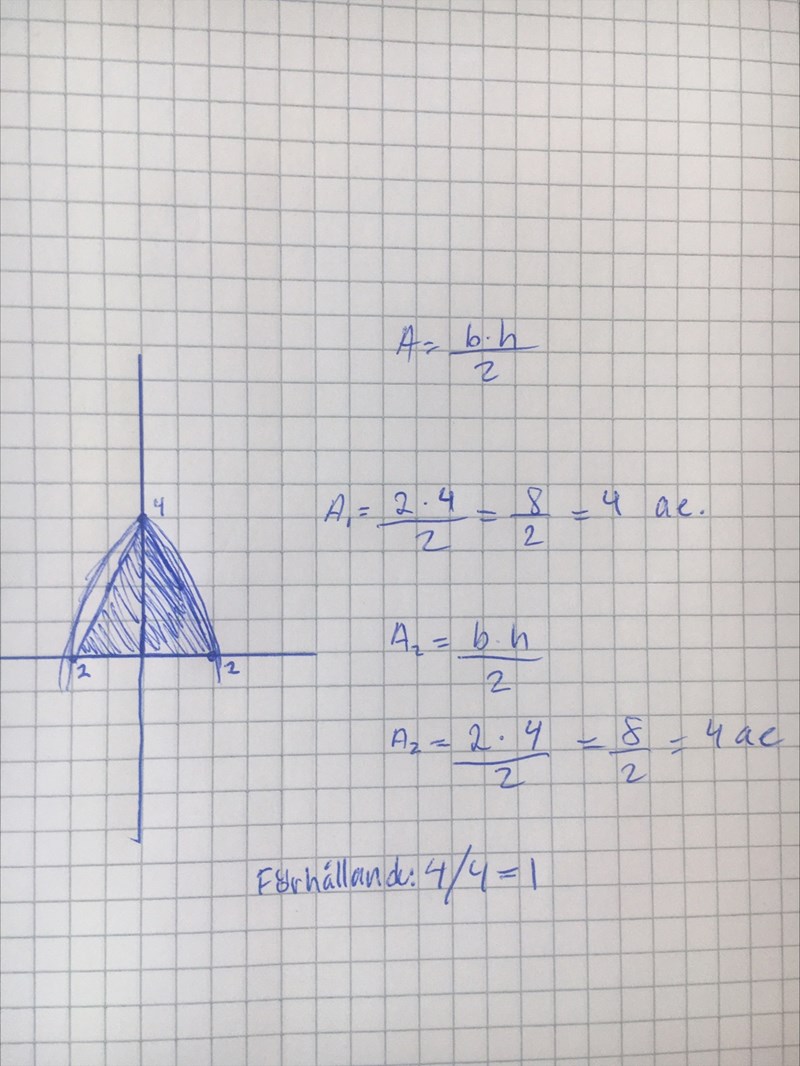 A = b·h/2
4
A₁ = 2·4/2 = 8/2 = 4 ae.
A₂ = b·h/2
2 2
A₂ = 2·4/2 = 8/2 = 4 ae
Förhållande: 4/4 = 1